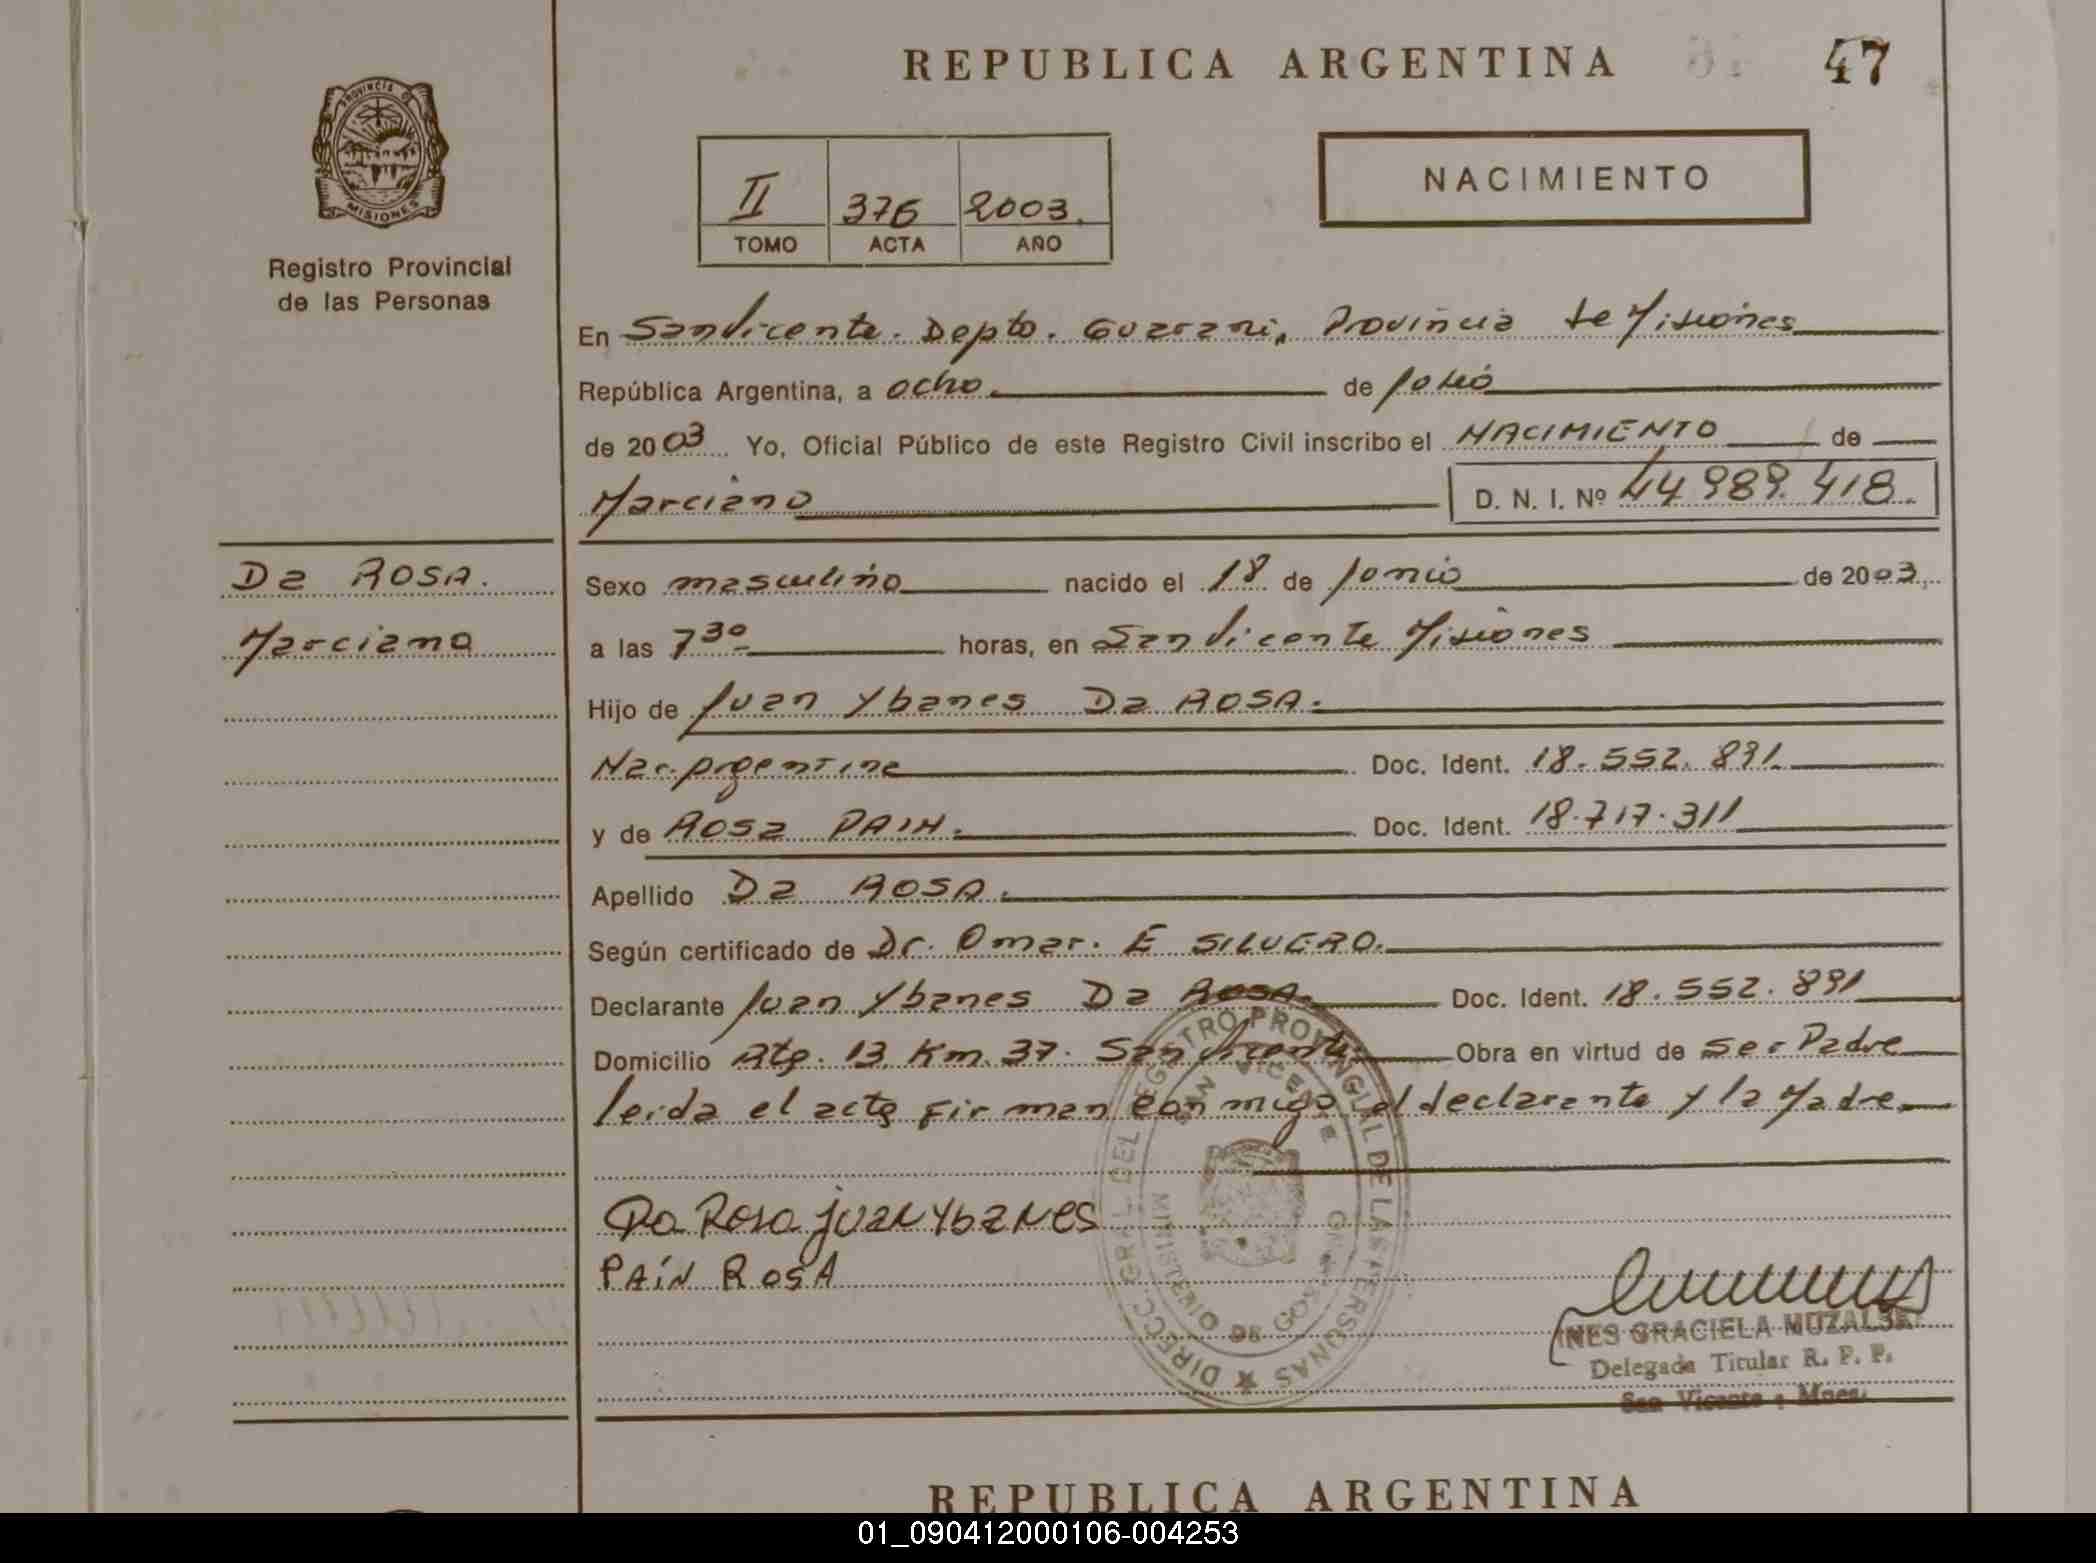 REPUBLICA ARGENTINA 47
PROVINCIA DE MISIONES
Registro Provincial
de las Personas
II 376 2003.
TOMO ACTA AÑO
NACIMIENTO
En San Vicente. Depto. Guarani, Provincia de Misiones
República Argentina, a ocho. de Julio
de 2003 Yo, Oficial Público de este Registro Civil inscribo el NACIMIENTO de
Marciano D. N. I. Nº 44 989. 418.
Da ROSA.
Marciano
Sexo masculino nacido el 18 de Junio de 2003.
a las 7 30 horas, en San Vicente Misiones
Hijo de Juan Ybanes Da ROSA.
Nac. Argentina Doc. Ident. 18. 552. 891
y de Rosa PAIN. Doc. Ident. 18.717.311
Apellido Da ROSA.
Según certificado de Dr. Omar. E SILVERO.
Declarante Juan Ybanes Da ROSA. Doc. Ident. 18. 552. 891
Domicilio Rta. 13 Km. 37. San Vicente Obra en virtud de ser Padre
leida el acta firman conmigo el declarante y la Madre.
DIRECC. GRAL. DEL REGISTRO PROVINCIAL DE LAS PERSONAS
SAN VICENTE
MINISTERIO DE GOB
Da Rosa juan Ybanes
PAIN ROSA
INES GRACIELA
Delegada Titular R. P. P.
San Vicente - Mnes.
REPUBLICA ARGENTINA
01_090412000106-004253